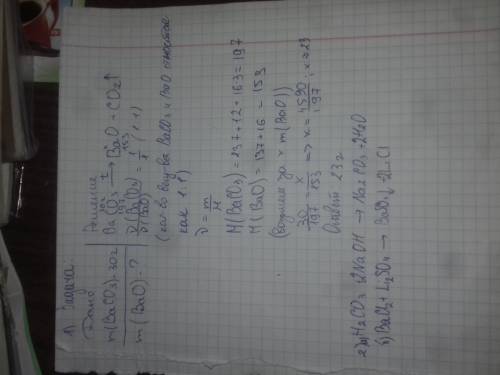 1) Задача.
Дано:
m(BaCO3)=30г
m(BaO)-?
Решение
30 x
BaCO3 → BaO + CO2↑
197 153
ν(BaCO3)/ν(BaO) = 1/1 (1:1)
(кол-во вещ-ва BaCO3 и BaO относятся
как 1:1)
ν = m/M
M(BaCO3) = 137+12+16·3 = 197
M(BaO) = 137+16 = 153
(возьмем за x m(BaO))
30/197 = x/153 => x = 4590/197; x=23
Ответ 23г
2) а) H2CO3 + 2NaOH → Na2CO3 + 2H2O
б) BaCl2 + Li2SO4 → BaSO4↓ + 2LiCl